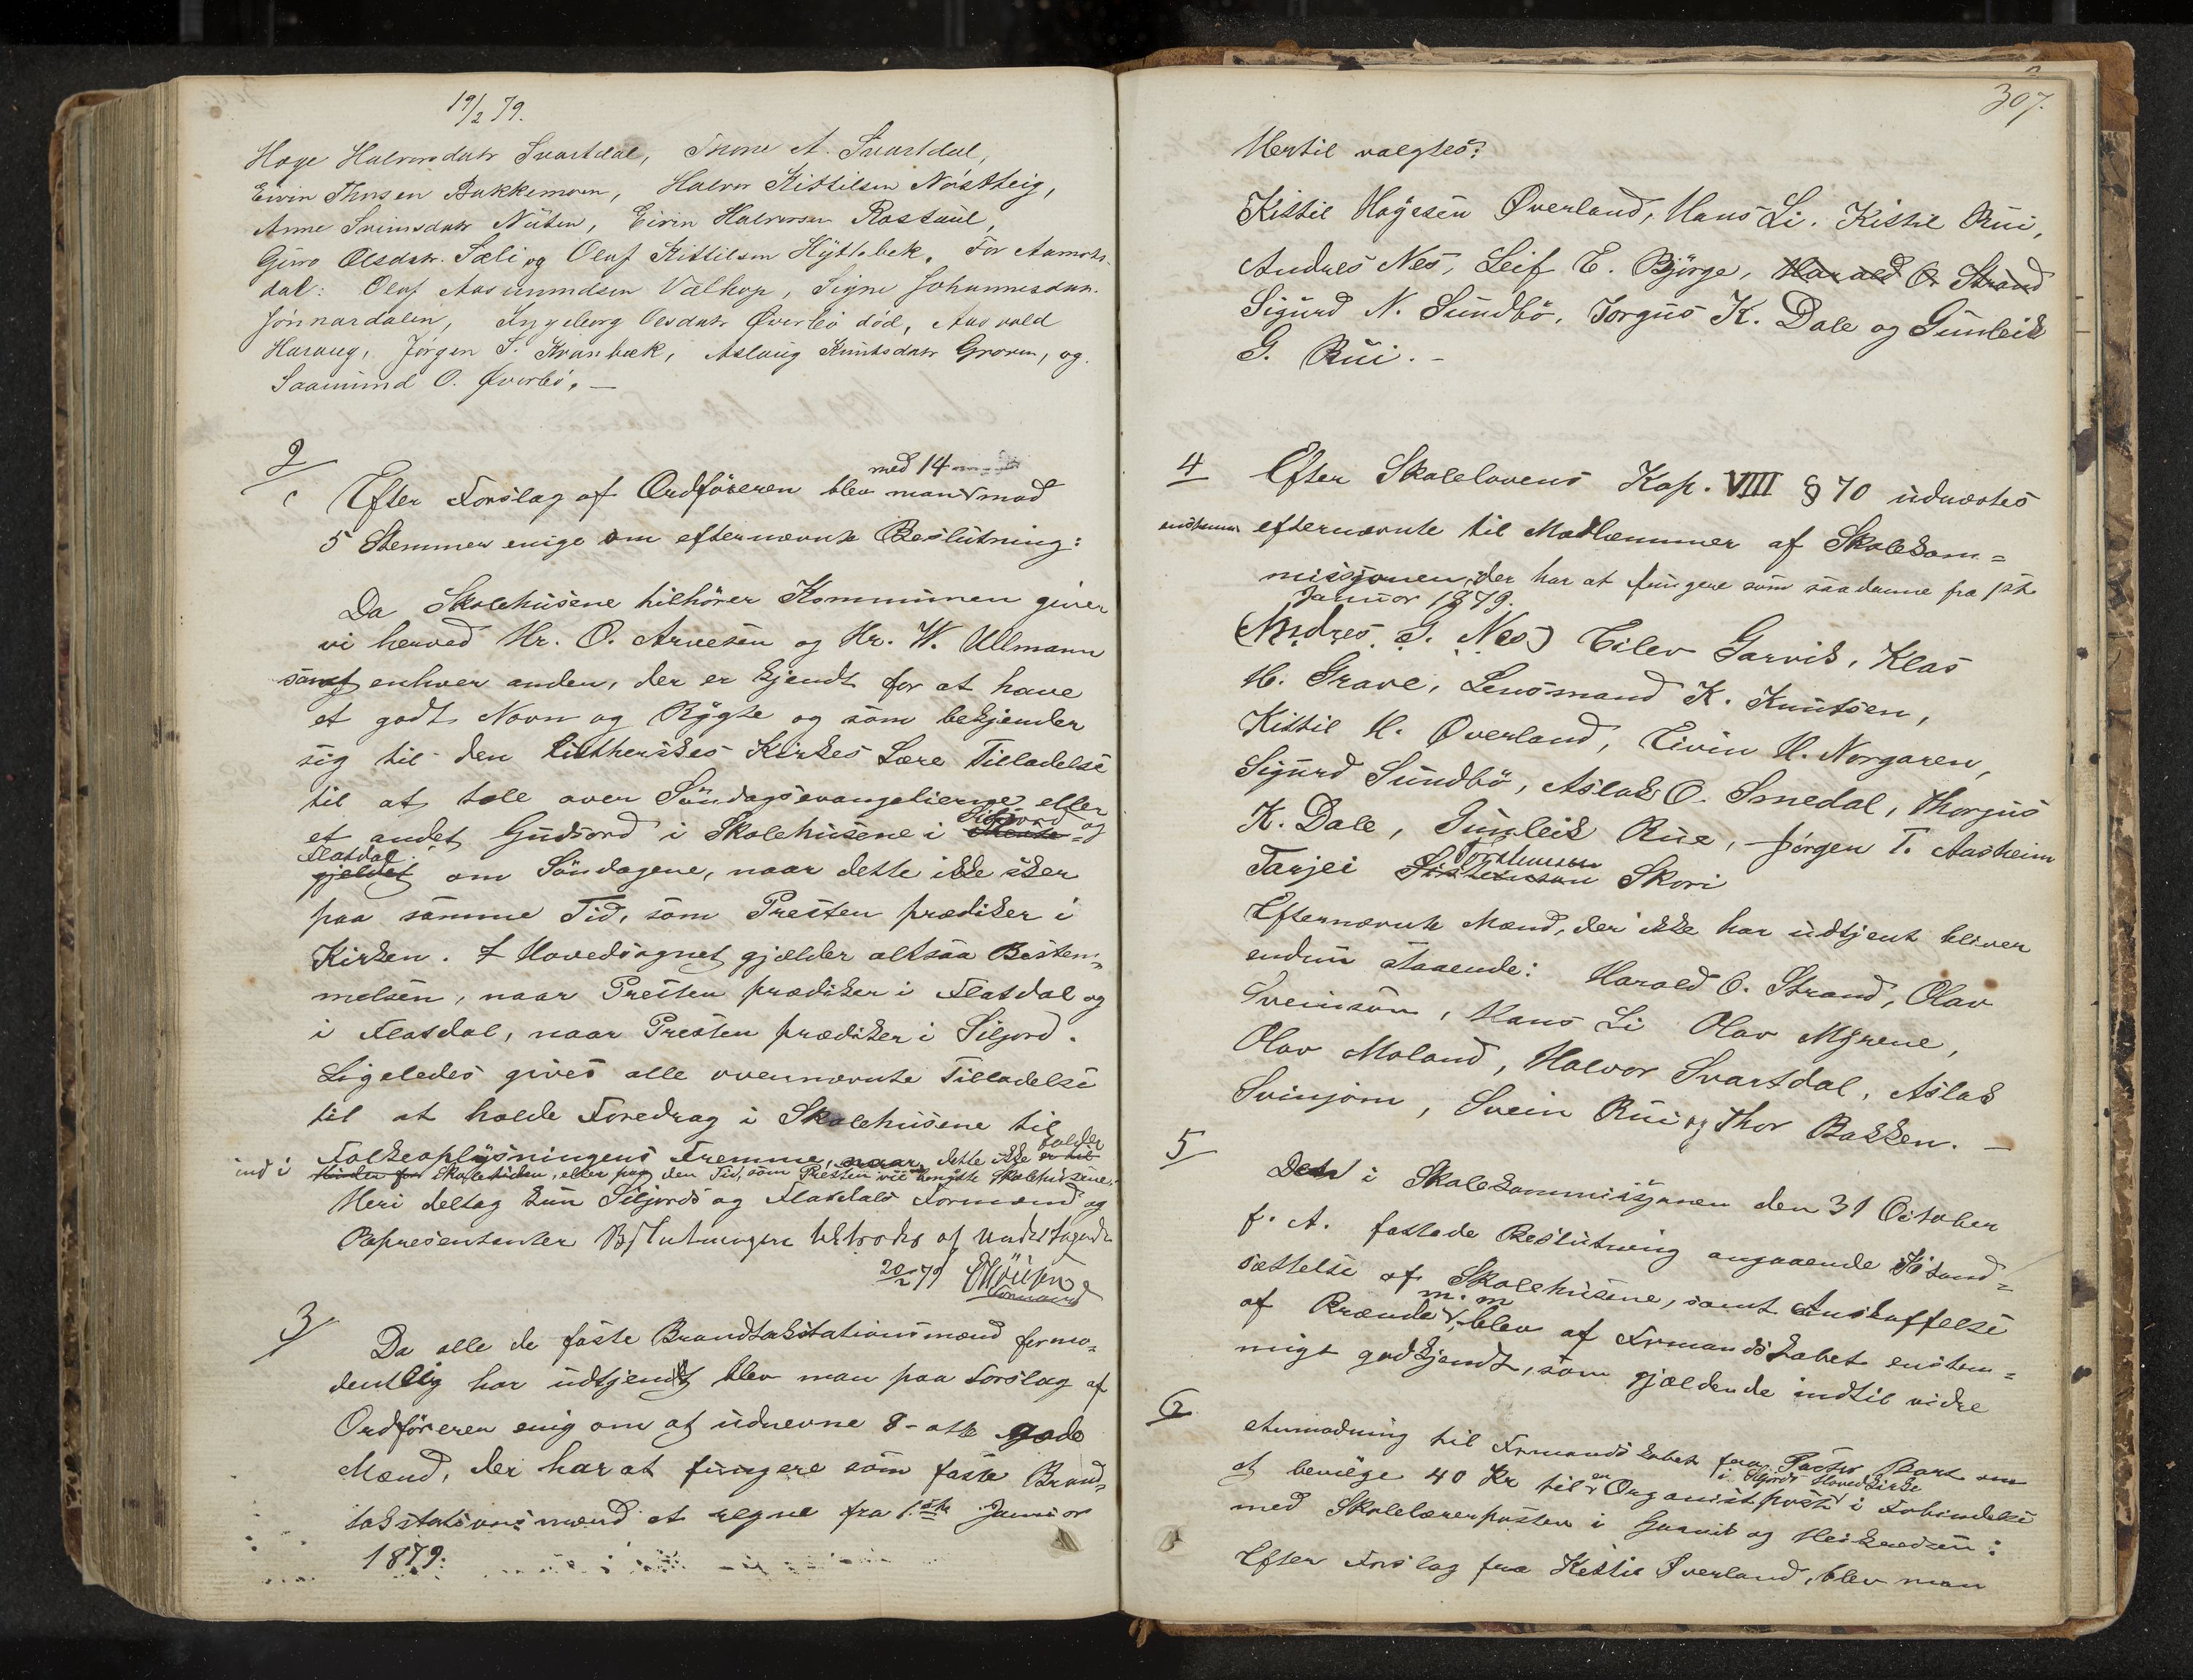 19/2 79.
Hæge Halvorsdatr Svartdal, Tnone A. Svartdal,
Eivin Thnsen Bakkemoen, Halvor Kittilsen Nöistteig,
Anne Sveinsdatr Nuten, Eivin Halvorsen Rostaul,
Guro Olsdatr. Sæli og Oluf Kittilsen Hyttebek. For Aamots-
dal: Oluf Aasmundsen Valhop, Signe Johannesdatr.
Jönnardalen, Ingeborg Olsdatr Överbö död, Aasvald
Haraug, Jørgen S. Kranbæk, Aslaug Knutsdatr Groven, og
Saamund O. Överbö. —
2/ Efter Forslag af Ordföreren blev man med 14 mod
5 Stemmer enige om efternævnte Beslutning:
Da Skolehusene tilhörer Kommunen giver
vi herved Hr. O. Arvesen og Hr. W. Ullmann
samt enhver anden, der er kjendt for at have
et godt Navn og Rygte og som bekjender
sig til den lutherskes Kirkes Lære Tilladelse
til at tale over Söndagsevangelierne eller
et andet Gudsord i Skolehusene i Siljord og
Flatdal
gjeldet om Söndagene, naar dette ikke sker
paa samme Tid, som Presten prædiker i
Kirken. I Hovedsognet gjælder altsaa Bestem=
melsen, naar Presten prædiker i Flatdal og
i Flatdal, naar Presten prædiker i Siljord.
Ligeledes gives alle ovennævnte Tilladelse
til at holde Foredrag i Skolehusene til
Folkeoplysningens Fremme, naar dette ikke er til falder
ind i Hinder for Skoletiden, eller paa den Tid, som Presten vil benytte Skolehusene.
Heri deltog kun Siljords og Flatdals Formænd og
Representanter Beslutningen tiltrædes af Undertegnede
20/2 79
Formand
3/ Da alle de faste Brandtakstationsmænd formo=
dentlig har udtjent blev man paa Forslag af
Ordföreren enig om at udnevne 8- otte gode
Mænd, der har at fungere som faste Brand=
takstationsmænd at regne fra 1ste Januar
1879:
307.
Hertil valgtes:
Kittil Høgesen Överland, Hans Li, Kittil Rui,
Andres Nes, Leif E. Björge, Harald O. Strand
Sigurd N. Sundbö, Torgus K. Dale og Gunleik
G. Rui. –
4 Efter Skolelovens Kap. VIII § 70 udnævntes
enstemm efternævnte til Medlemmer af Skolekom=
missjonen, der har at fungere som saadanne fra 1ste
Januar 1879.
(Andres G. Nes) Eilev Garvik, Klas
H. Grave, Lensmand K. Knutsen,
Kittil H. Överland, Eivin H. Norgaren,
Sigurd Sundbö, Aslak O. Smedal, Thorgus
K. Dale, Gunleik Rue, Jørgen T. Aasheim
Torsteinson
Tarjei Skori
Efternævnte Mænd, der ikke har udtjent bliver
endnu staaende: Harald O. Strand, Olav
Sveinsön, Hans Li Olav Myrene,
Olav Moland, Halvor Svartdal, Aslak
Svinjom, Svein Rui og Thor Bakken. —
5 Den i Skolekommissjonen den 31 October
f. A. fattede Beslutning angaaende Istand=
sættelse af Skolehusene, samt Anskaffelse
af Brænde m. m. blev af Formandskabet enstem=
migt godkjendt, som gjældende indtil vidre
6 Anmodning til Formandskabet fra Pastor Bart om
at bevilge 40 Kr til en Organistpost i Siljords Hovedkirke i Forbindelse
med Skolelærerposten i Garvik og Heikredsen:
Efter Forslag fra Kittil Överland, blev man